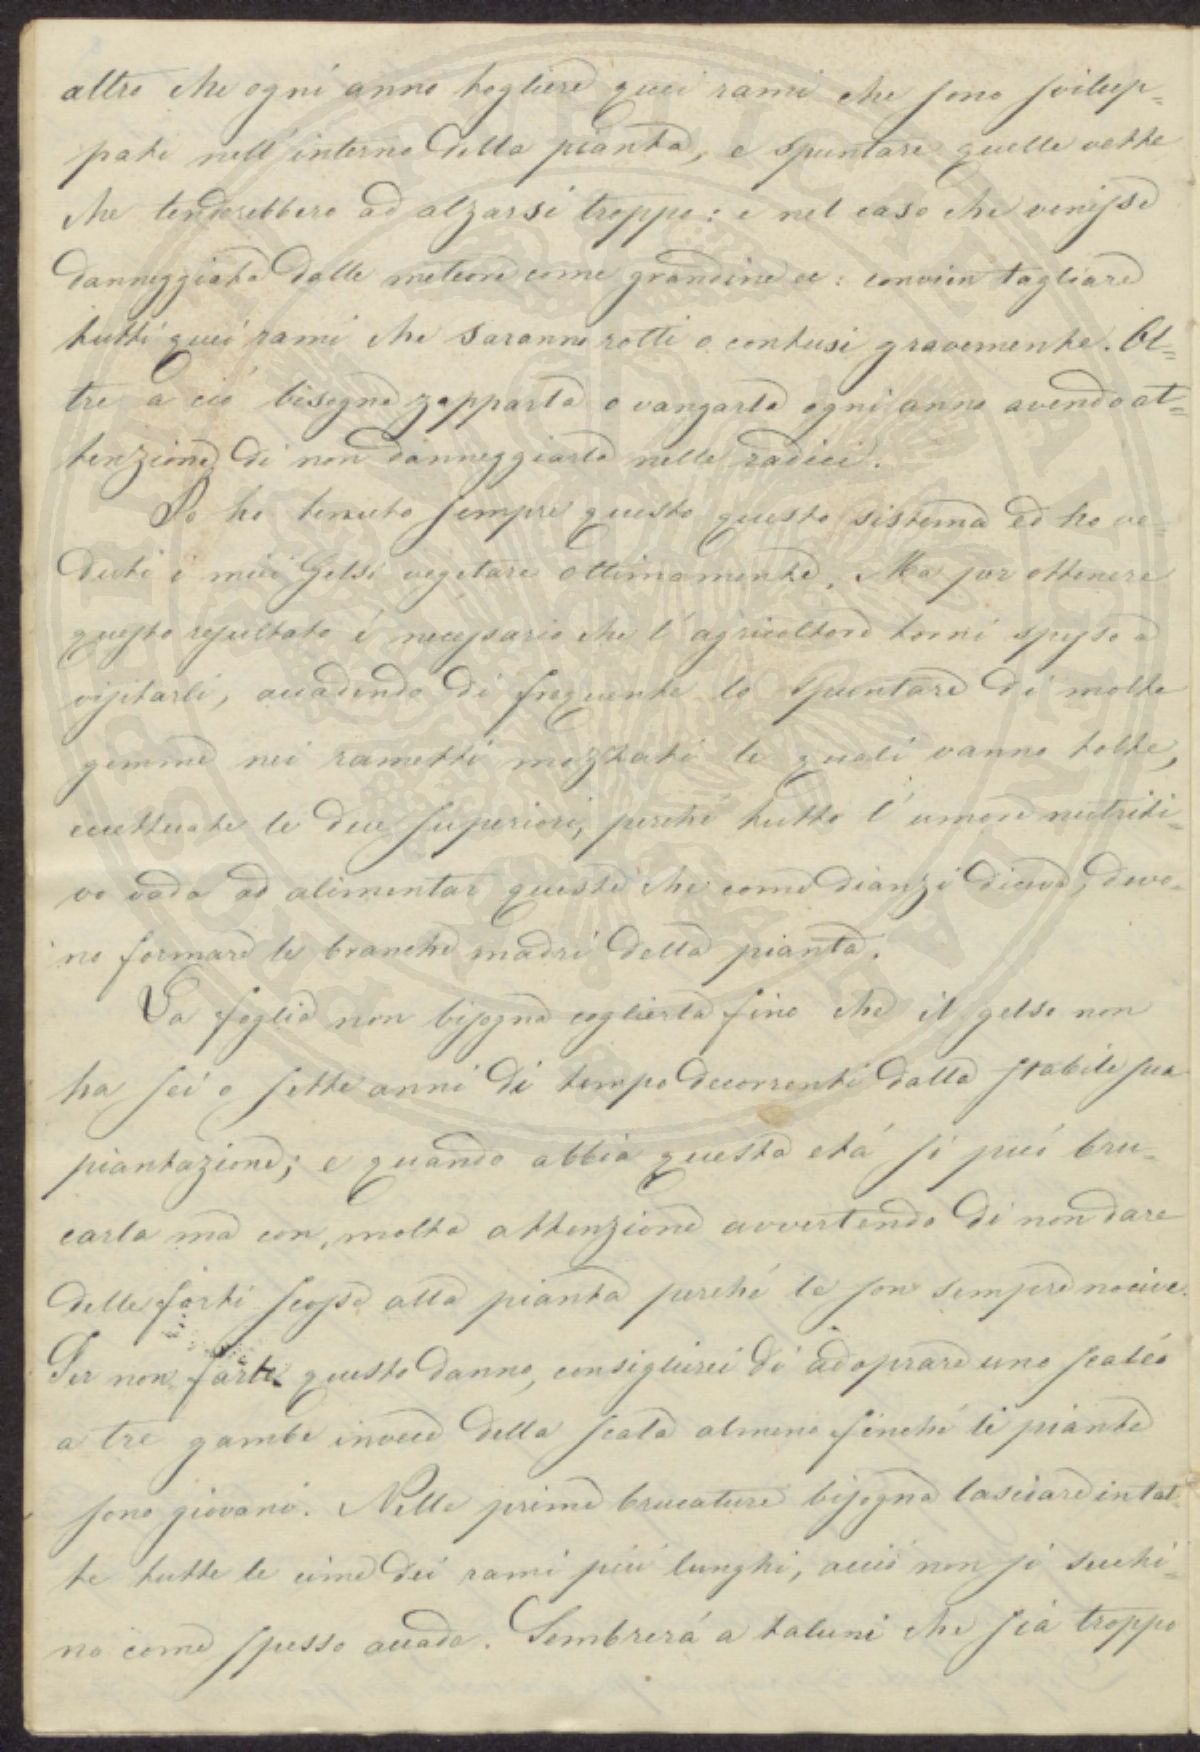 altro che ogni anno togliere quei rami che sono svilup=
pati nell'interno della pianta, e spuntare quelle vette
che tenderebbero ad alzarsi troppo: e nel caso che venisse
danneggiata dalle meteore come grandine ec: convien tagliare
tutti quei rami che saranno rotti o contusi gravemente. Ol=
tre a ciò bisogna zapparla o vangarla ogni anno avendo at=
tenzione di non danneggiarla nelle radici.
Io ho tenuto sempre questo questo sistema ed ho ve=
duti i miei Gelsi vegetare ottimamente. Ma per ottenere
questo resultato é necessario che l'agricoltore torni spesso a
visitarli, accadendo di frequente lo spuntare di molte
gemme nei rametti mozzati le quali vanno tolte,
eccettuate le due superiori, perché tutto l'umore nutriti=
vo vada ad alimentar queste che come dianzi diceva, devo=
no formare le branche madri della pianta.
La foglia non bisogna coglierla fino che il gelso non
ha sei o sette anni di tempo decorrenti dalla stabile sua
piantazione; e quando abbia questa etá si puó bru=
carla ma con molta attenzione avvertendo di non dare
delle forti scosse alla pianta perché le son sempre nocive.
Per non farle questo danno, consiglierei di adoprare uno scaléo
a tre gambe invece della scala almeno finché le piante
sono giovani. Nelle prime brucature bisogna lasciare intat=
te tutte le cime dei rami piú lunghi, acció non si secchi=
no come spesso accade. Sembrerá a taluni che sia troppo